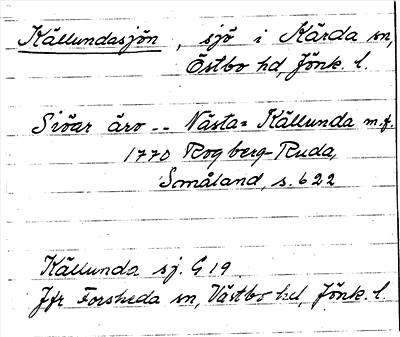 Källundasjön, sjö i Kärda sn,
Östbo hd, Jönk. l.
Siöar äro -- Nästa= Källunda m.f.
1770 Rogberg-Ruda,
Småland, s. 622
Källunda sj. G 19.
Jfr Forsheda sn, Västbo hd, Jönk. l.